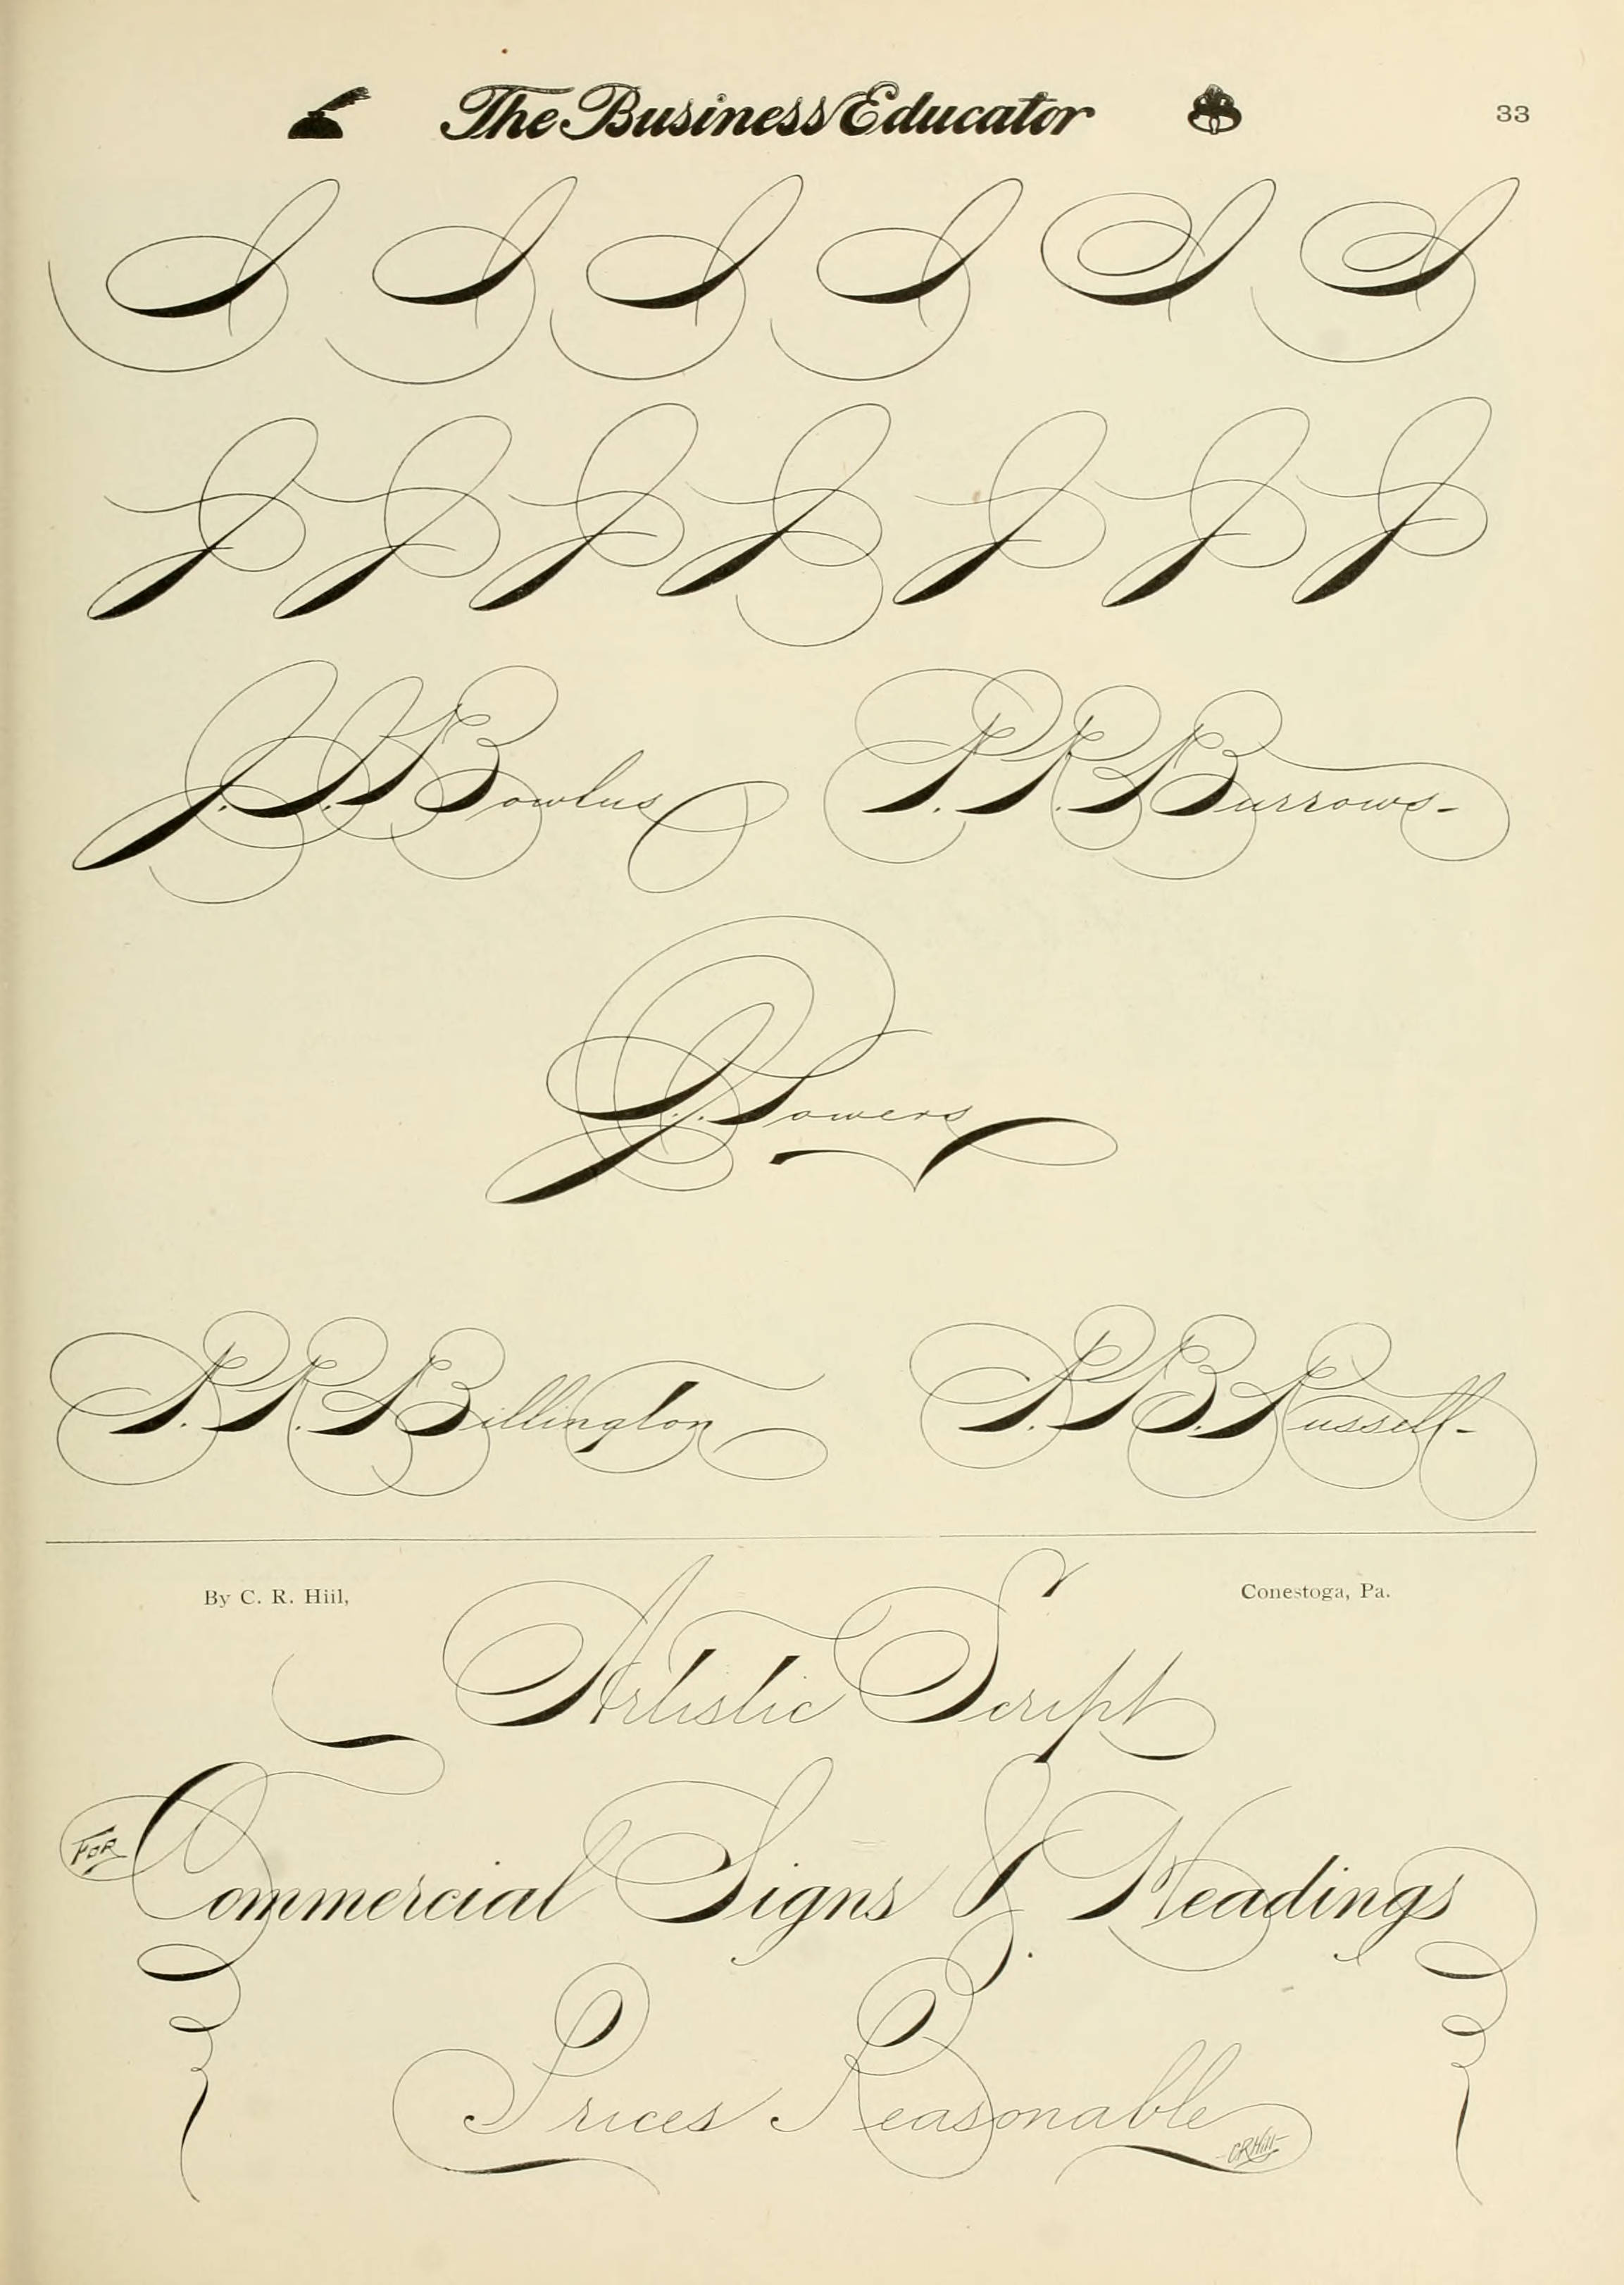 The Business Educator 33
I I I I I I
J J J J J J J
J. I. Bowlus P. R. Burrows-
P. R. Billington P. B. Russell-
By C. R. Hiil, Conestoga, Pa.
Artistic Script
FOR Commercial Signs & Headings.
Prices Reasonable
CRHill-